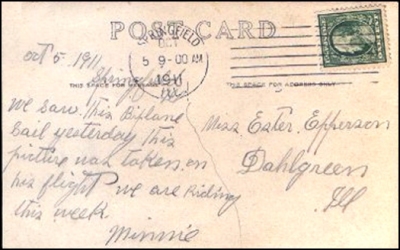 POST CARD
SPRINGFIELD
OCT
5 9-00 AM
1911
ILL.
THIS SPACE FOR
THIS SPACE FOR ADDRESS ONLY
Oct 5 1911
Springfield
We saw this Biplane
Sail yesterday this
picture was taken on
his flight we are Riding
this week.
Minnie
Miss Ester Epperson
Dahlgreen
Ill